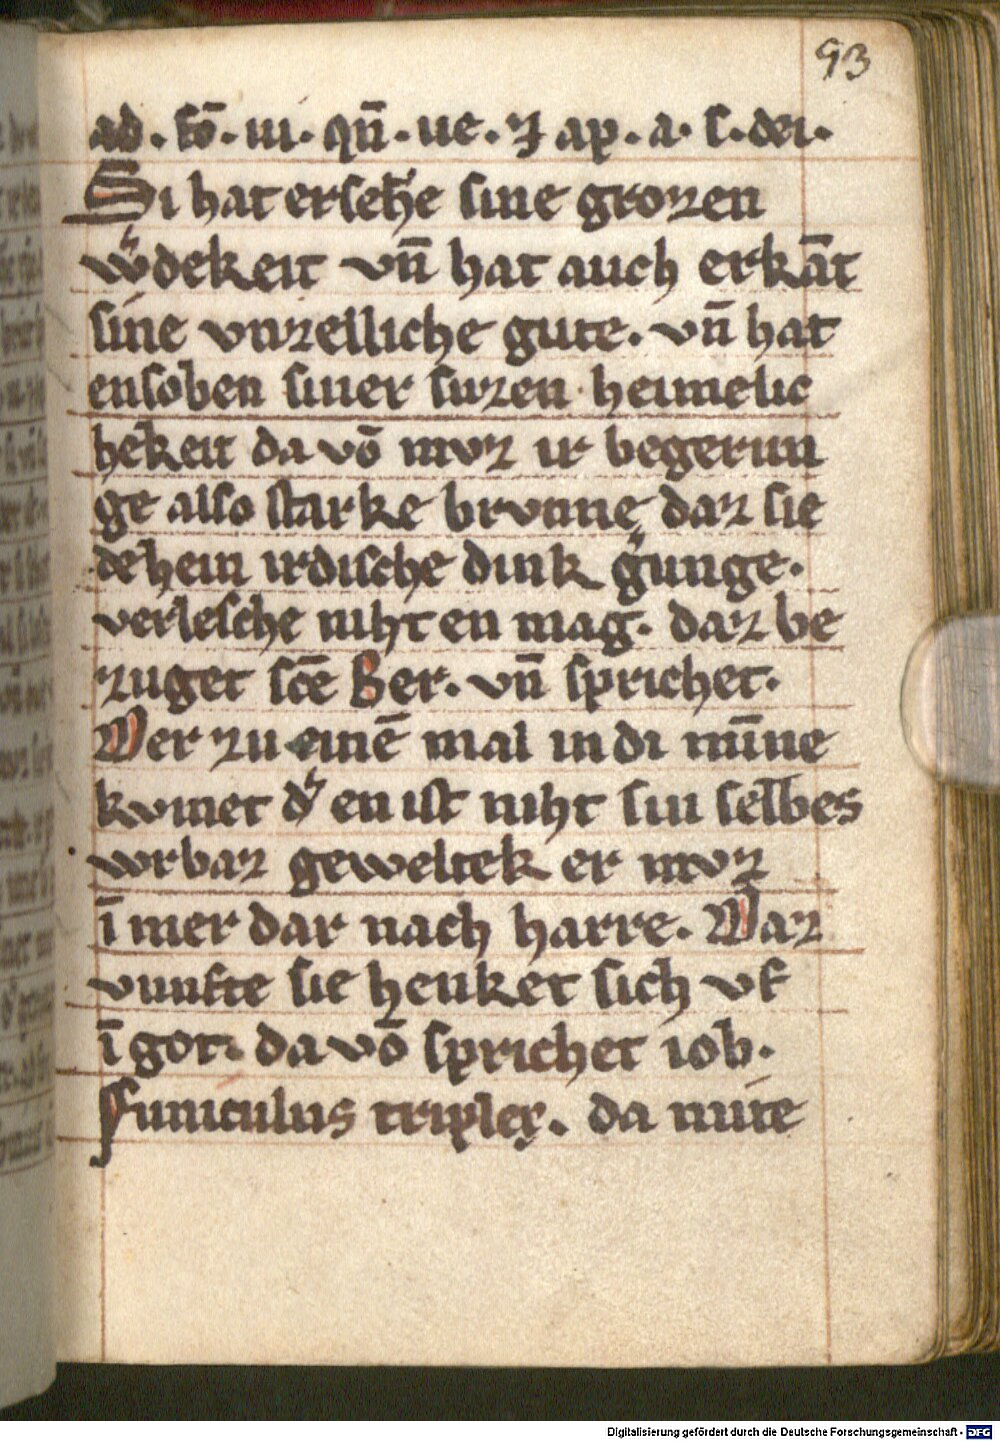 93
ad · fō · iii · qn̄ · ue · ⁊ ap · a · f · dei ·
Si hat ersehē sine grozen
w᷑dekeit vn̄ hat auch erkāt
sine vnzelliche gute. vn̄ hat
ensoben siner suzen heimelic
hekeit da vō mvz ir begerun
ge also starke brvnne daz sie
dehein irdische dink g᷑unge.
verlesche niht en mag. daz be
zuget sc̄e Ber. vn̄ sprichet.
Wer zu einē mal in di mīne
kvmet d᷑ en ist niht sin selbes
wrbaz geweltek er mvz
īmer dar nach harre. Waz
vunfte sie henket sich vf
ī got. da vō sprichet iob.
Funiculus triplex. da mite
Digitalisierung gefördert durch die Deutsche Forschungsgemeinschaft - DFG